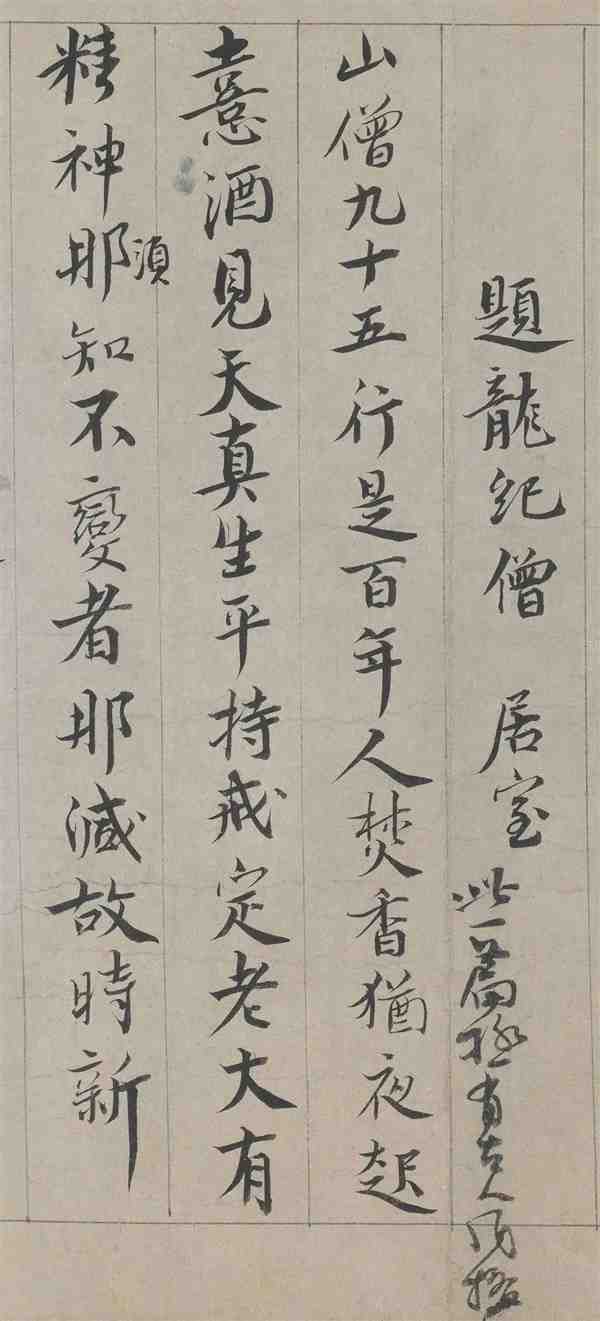 題龍紀僧居室 此一篇極有古人風格
山僧九十五行是百年人焚香猶夜起
憙酒見天真生平持戒定老大有
精神那須知不變者那減故時新